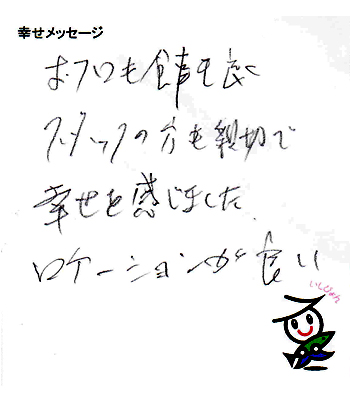 幸せメッセージ
おフロも食事も良く
スタッフの方も親切で
幸せを感じました。
ロケーションが良い
いしぴょん